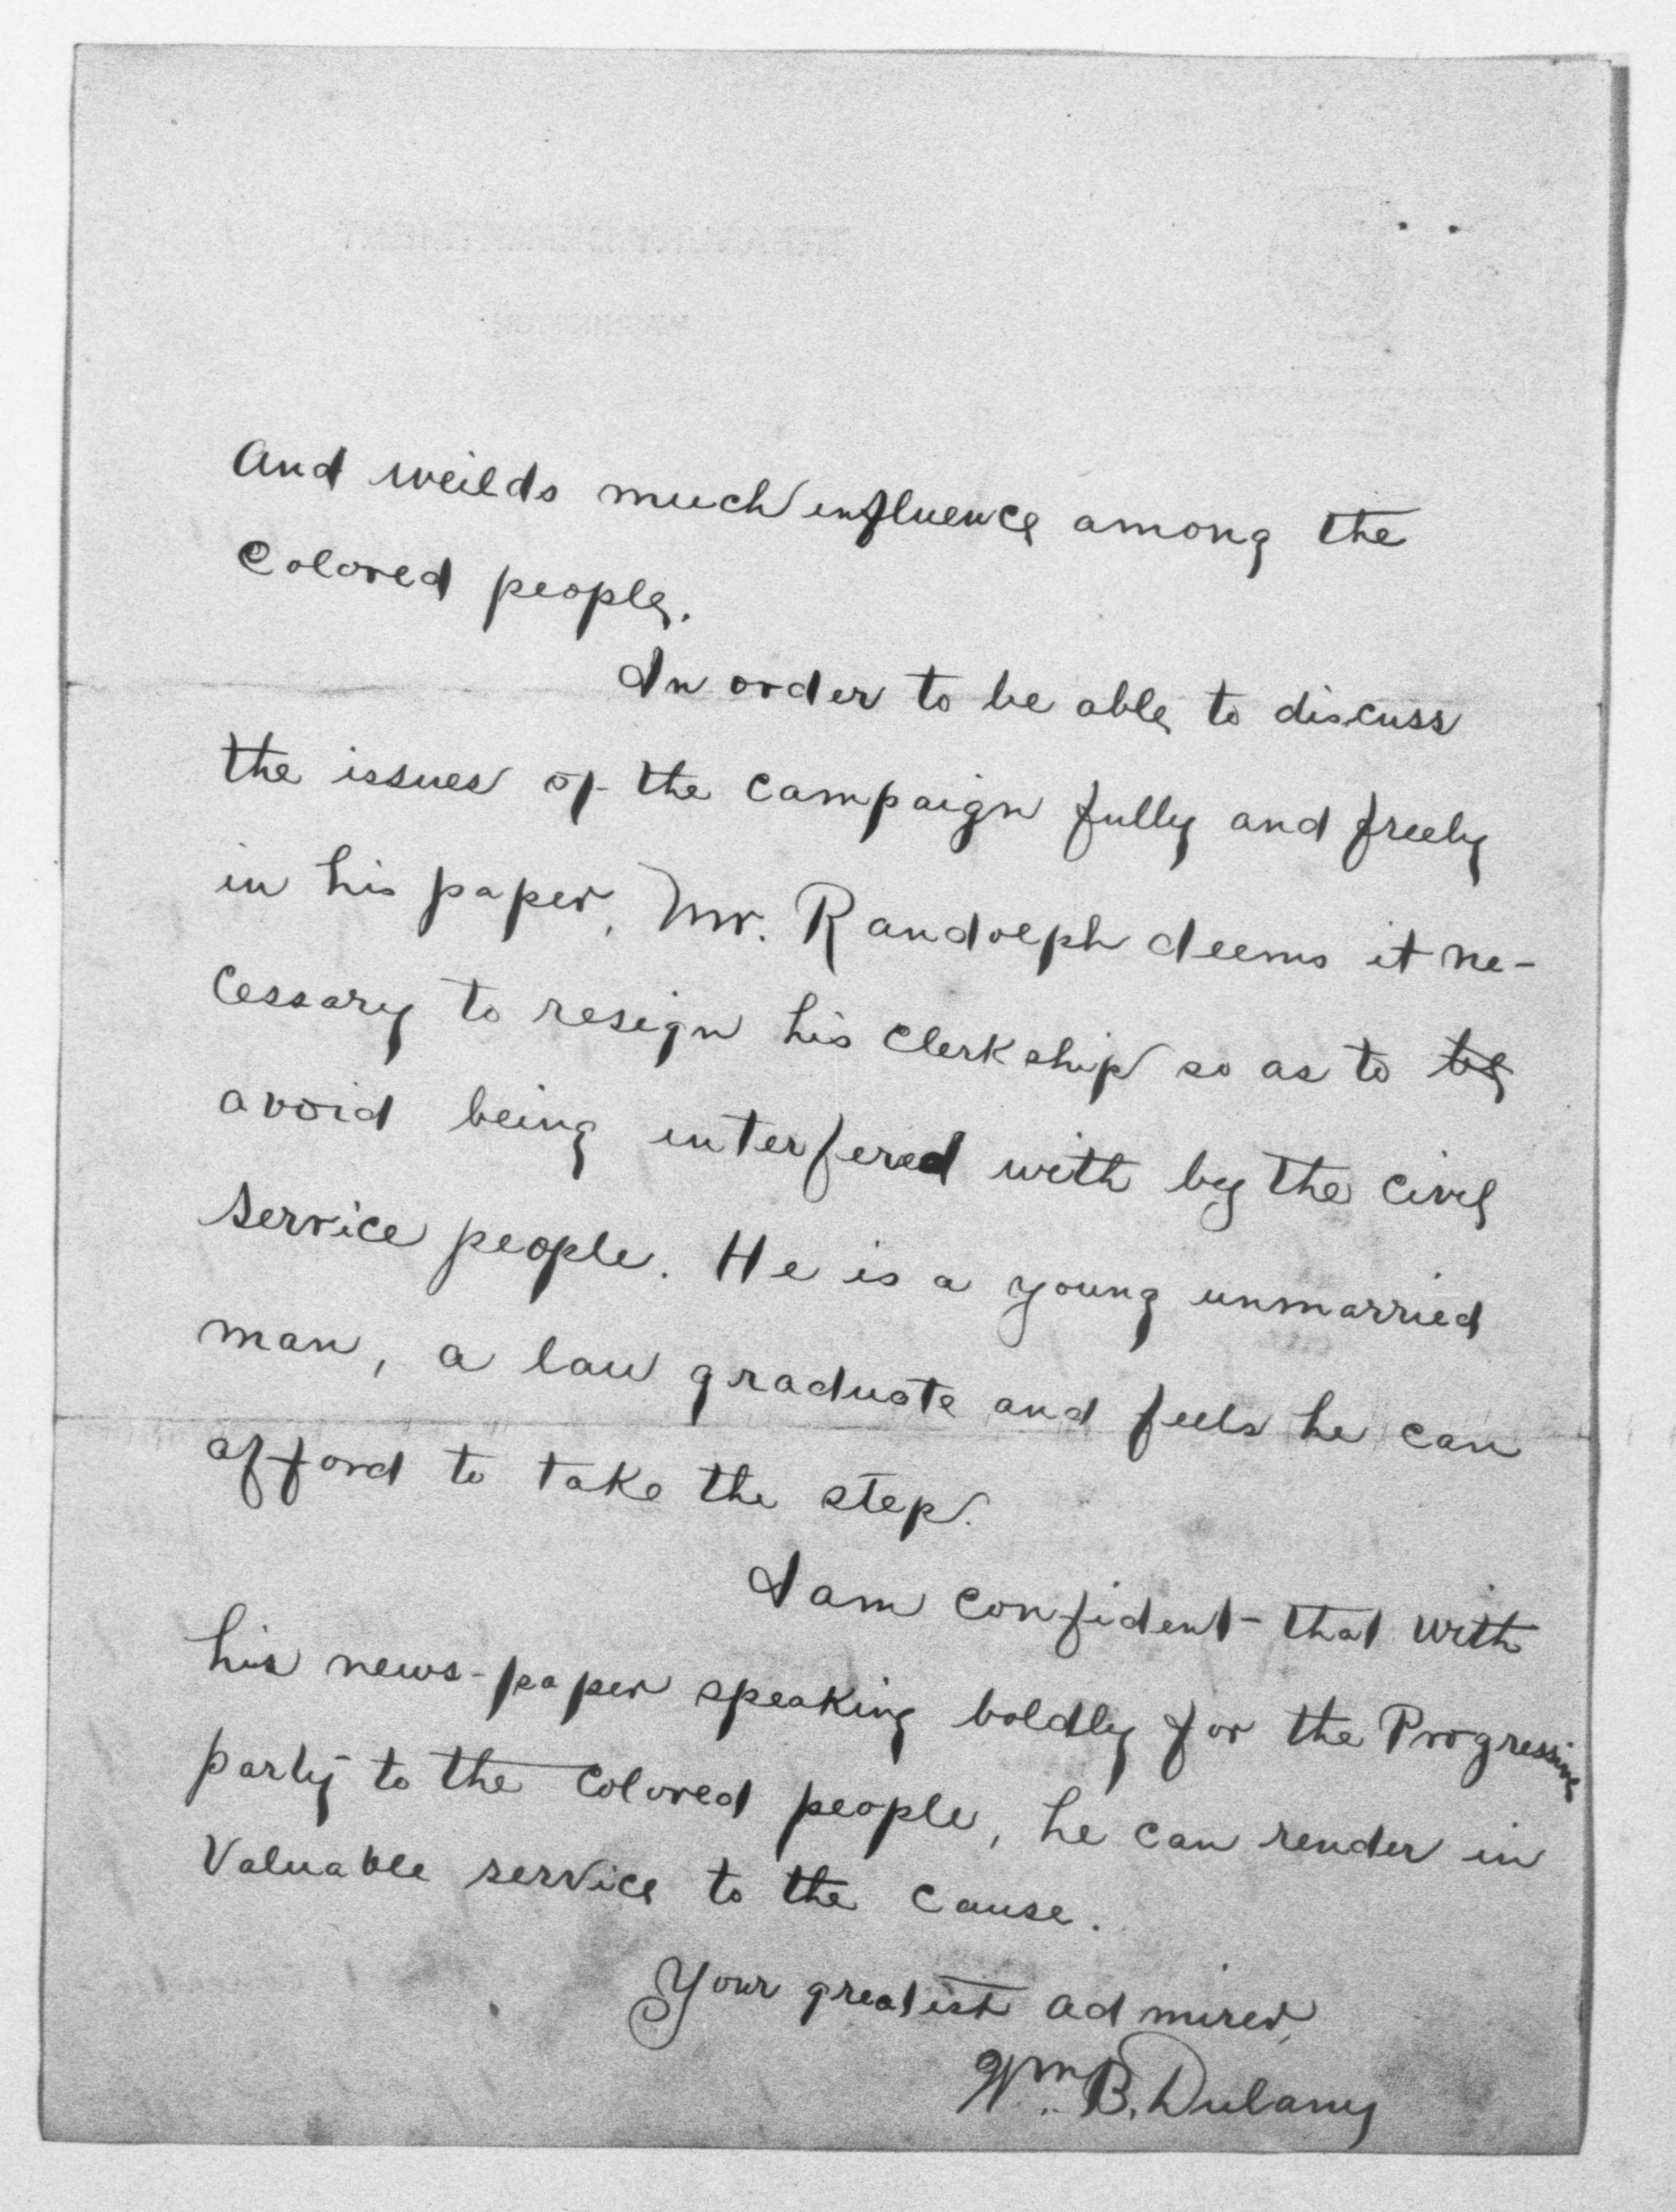 And weilds much influence among the
Colored people.
In order to be able to discuss
the issues of the campaign fully and freely
in his paper, Mr. Randolph deems it ne-
cessary to resign his clerkship so as to be
avoid being interfered with by the civil
service people. He is a young unmarried
man, a law graduate and feels he can
afford to take the step.
I am confident that with
his news-paper speaking boldly for the Progressive
party to the colored people, he can render in
valuable service to the cause.
Your greatest admirer,
Wm. B. Dulany